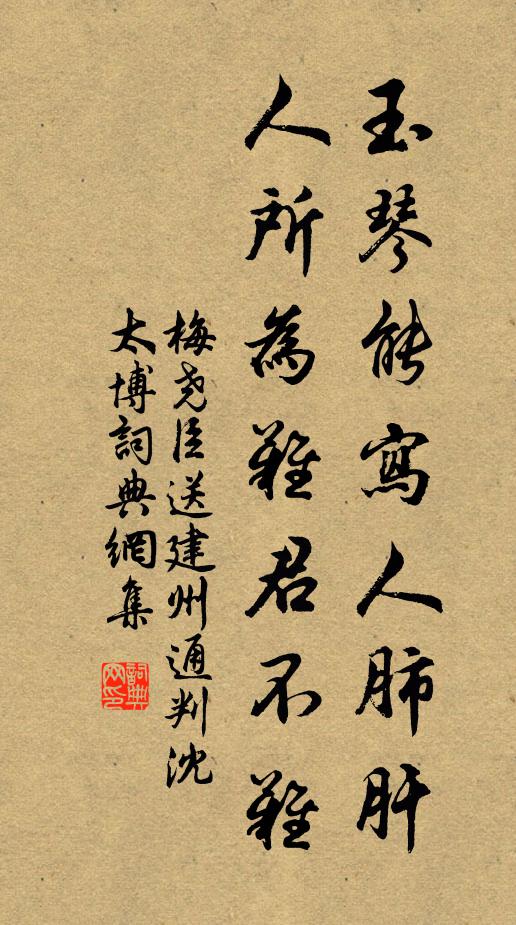 玉琴能寫人肺肝
人所為難君不難
梅堯臣送建州通判沈
太博詞典網集
詞典網印